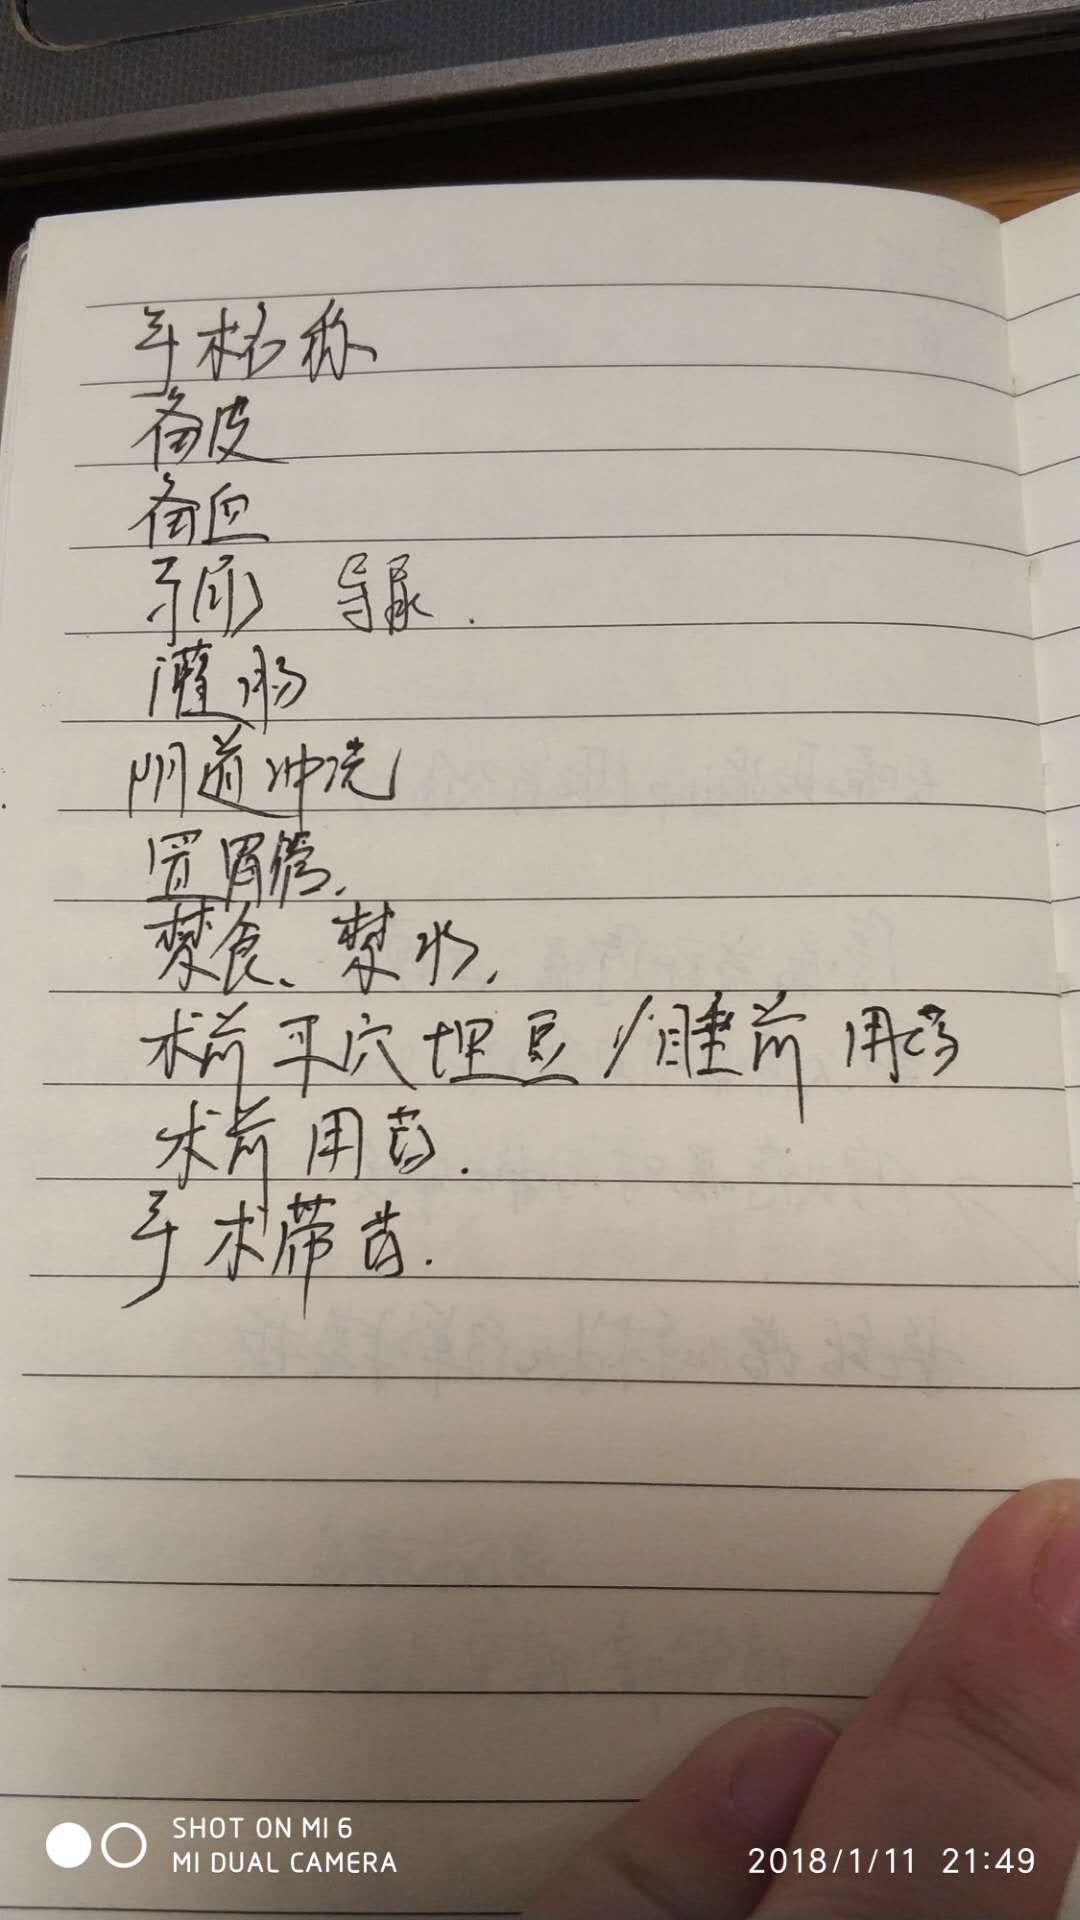 手术名称
备皮
备血
导尿.
灌肠
阴道冲洗
置胃管.
禁食、禁水.
术前耳穴埋豆/睡前用药
术前用药.
手术带药.
SHOT ON MI 6
MI DUAL CAMERA
2018/1/11 21:49